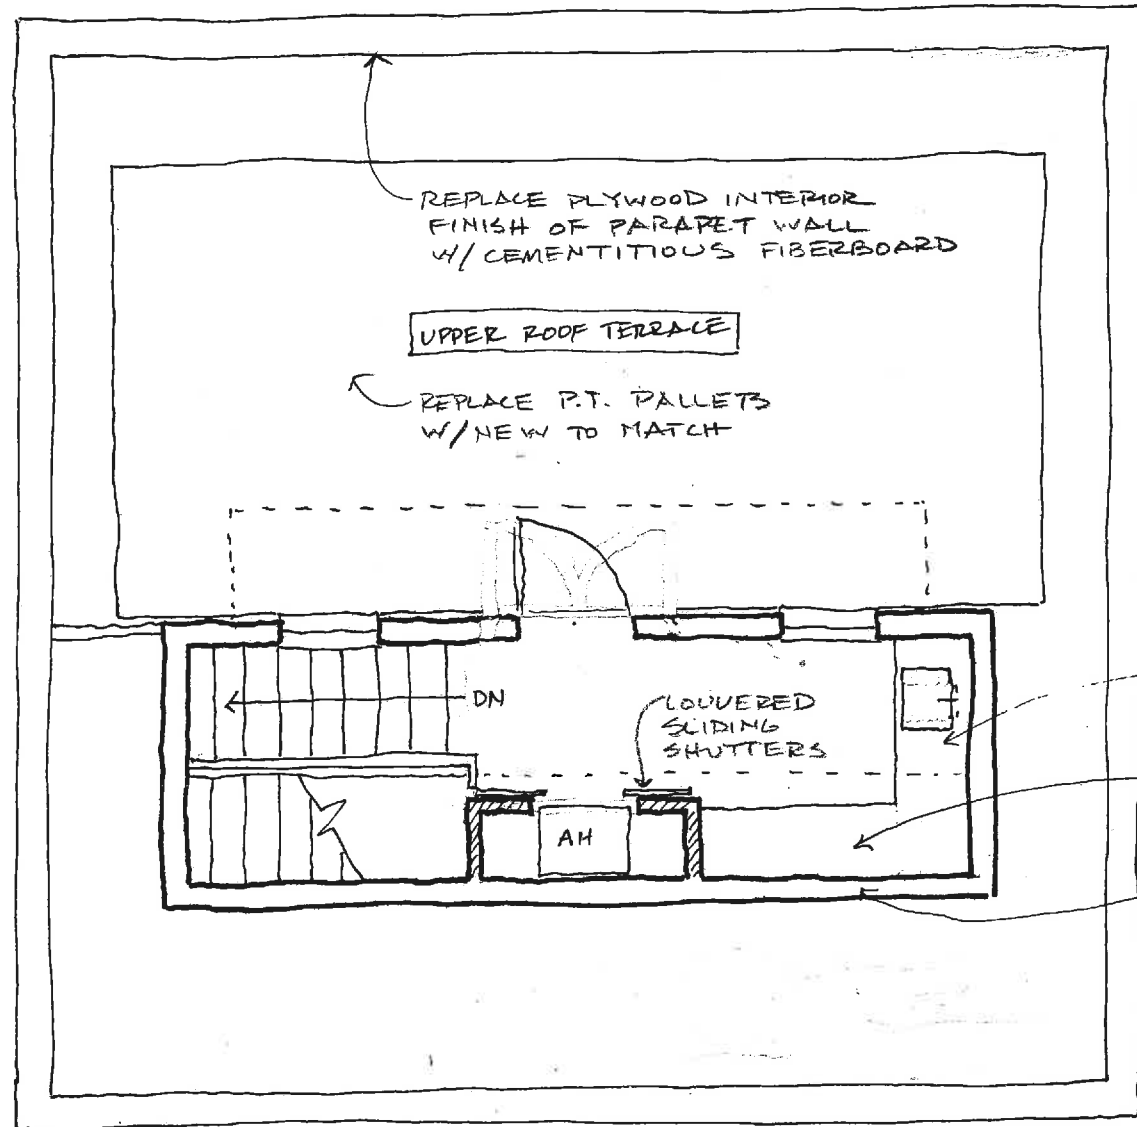 REPLACE PLYWOOD INTERIOR
FINISH OF PARAPET WALL
W/ CEMENTITIOUS FIBERBOARD
UPPER ROOF TERRACE
REPLACE P.T. PALLETS
W/ NEW TO MATCH
DN
LOUVERED
SLIDING
SHUTTERS
AH